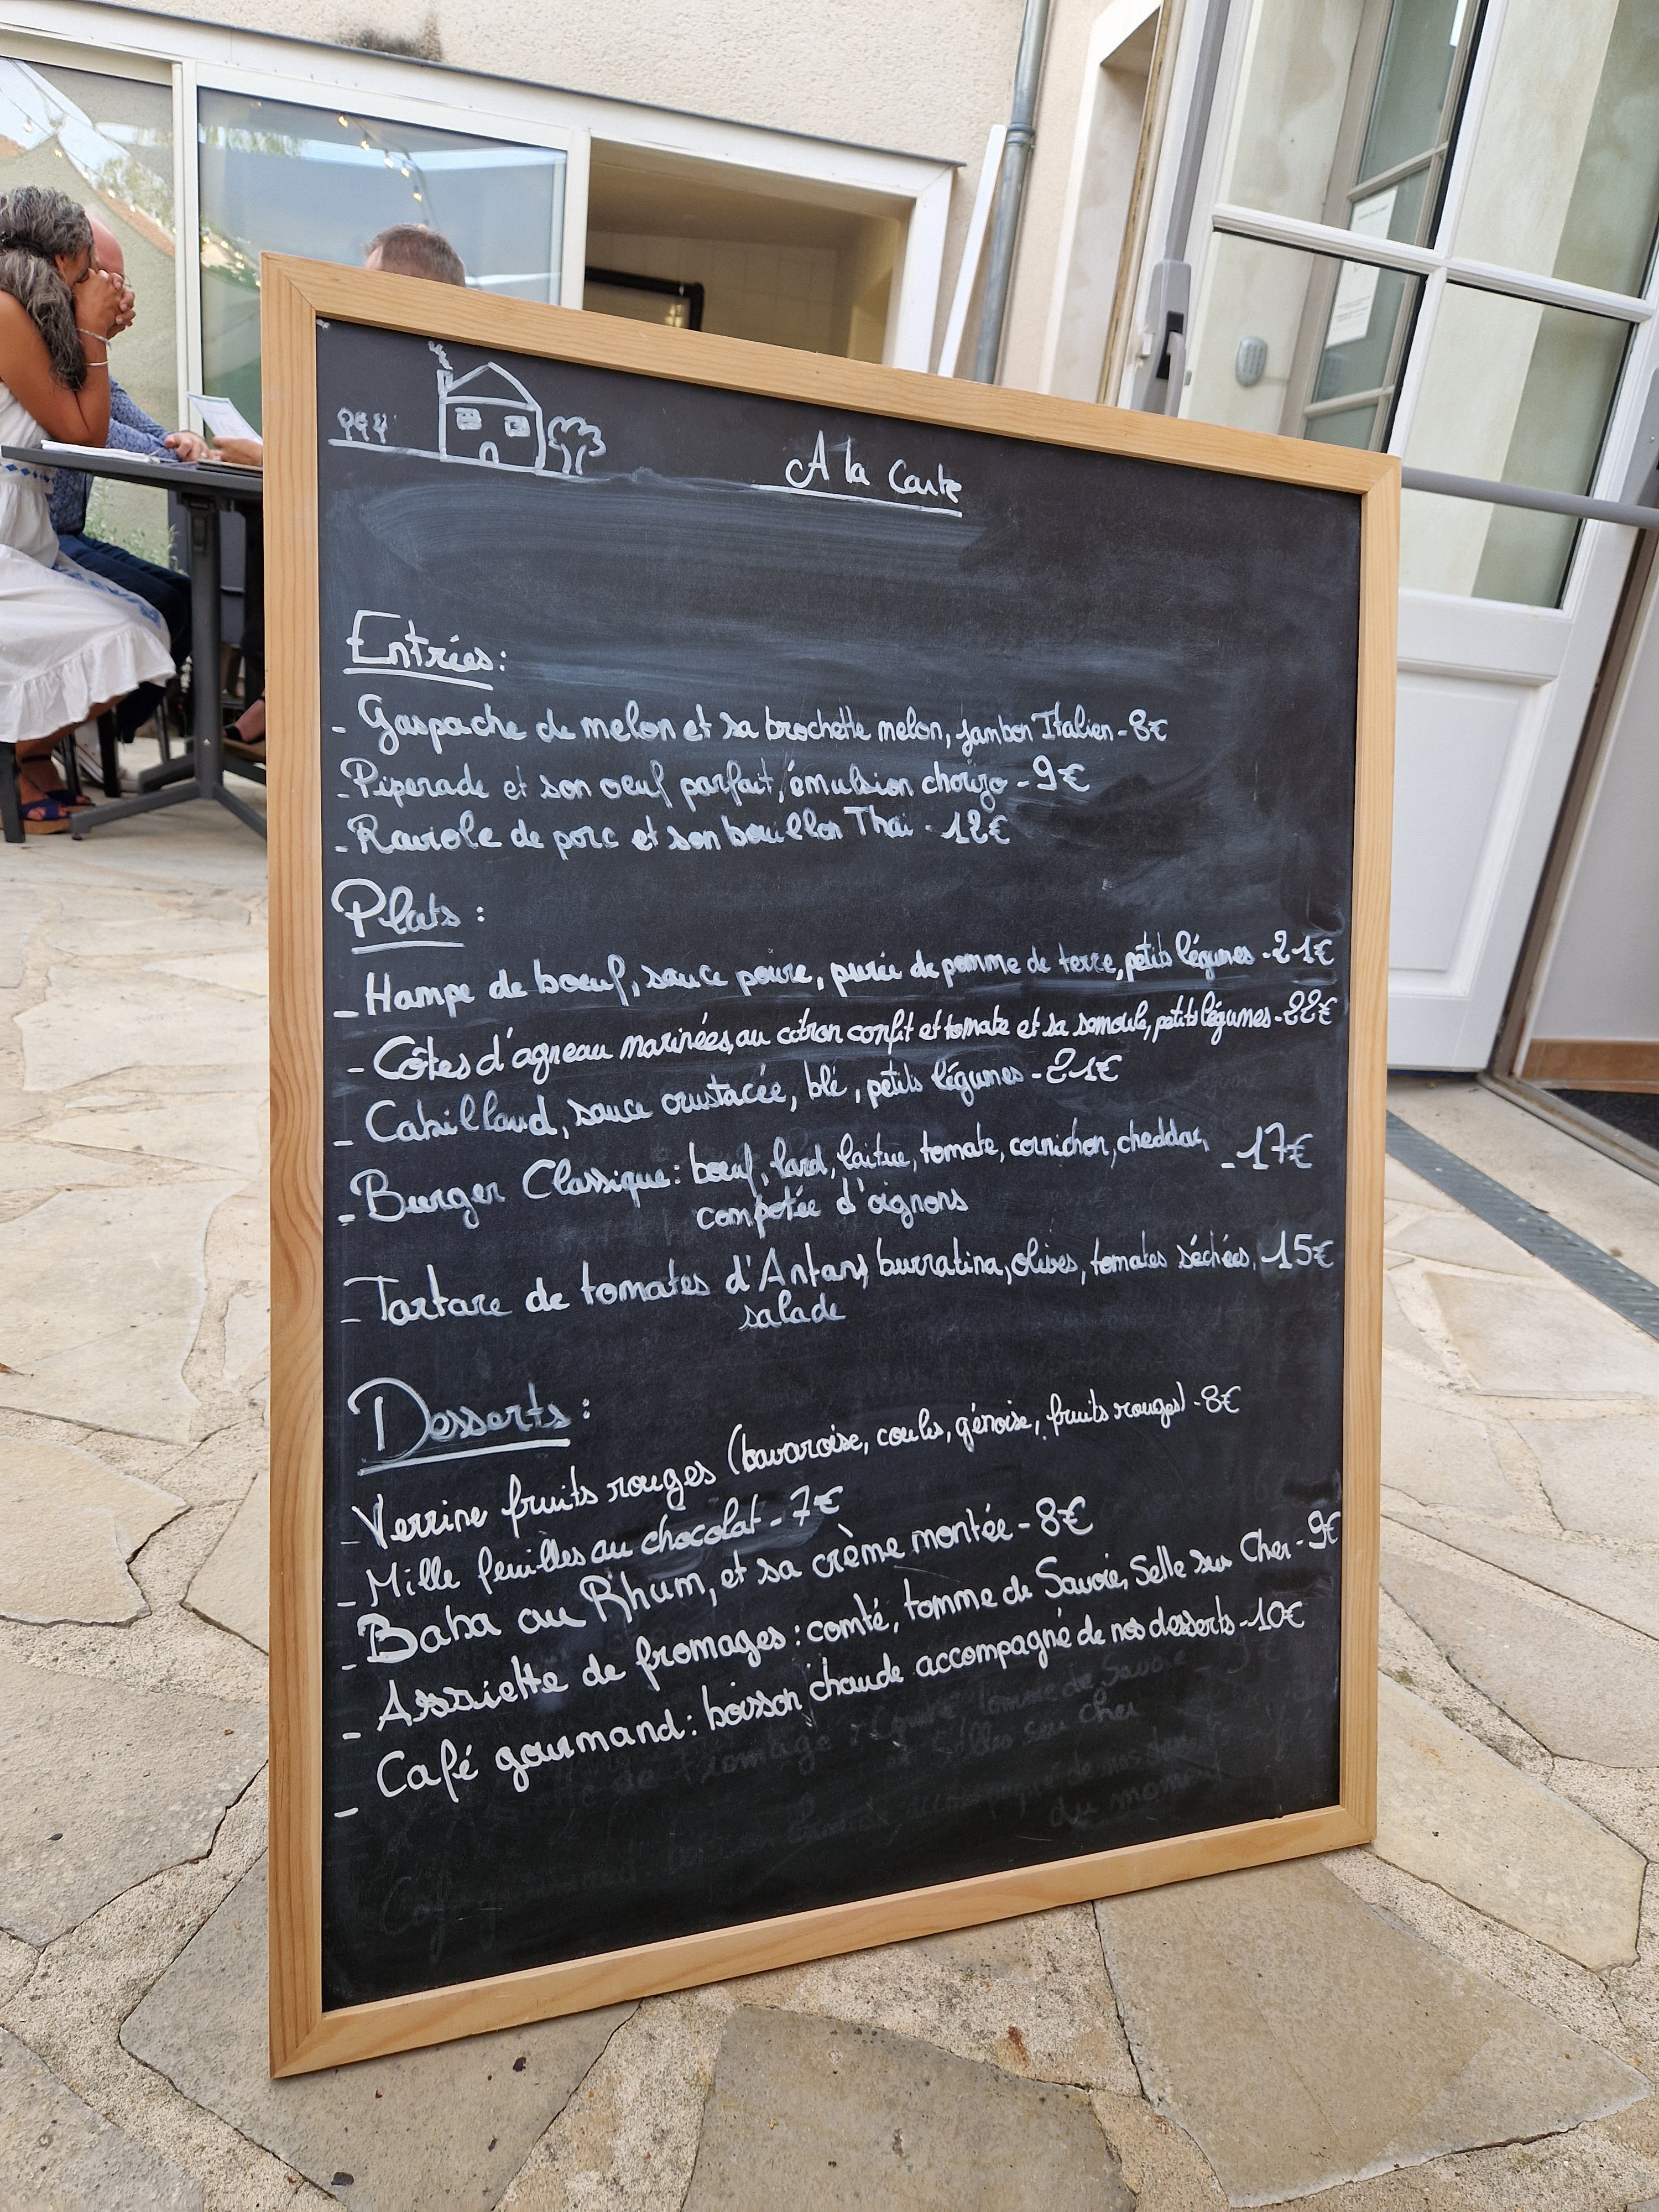 A la Carte
Entrées :
- Gaspache de melon et sa brochette melon, jambon Italien - 8€
- Piperade et son oeuf parfait, émulsion chorizo - 9€
- Raviole de porc et son bouillon Thaï - 12€
Plats :
- Hampe de boeuf, sauce poivre, purée de pomme de terre, petits légumes - 21€
- Côtes d'agneau marinées, au citron confit et tomate et sa semoule, petits légumes - 22€
- Cabillaud, sauce crustacée, blé, petits légumes - 21€
- Burger Classique : boeuf, lard, laitue, tomate, cornichon, cheddar, - 17€
compotée d'oignons
- Tartare de tomates d'Antan, burratina, olives, tomates séchées, - 15€
salade
Desserts :
- Verrine fruits rouges (bavaroise, coulis, génoise, fruits rouges) - 8€
- Mille feuilles au chocolat - 7€
- Baba au Rhum, et sa crème montée - 8€
- Assiette de fromages : comté, tomme de Savoie, Selle sur Cher - 9€
- Café gourmand : boisson chaude accompagné de nos desserts - 10€